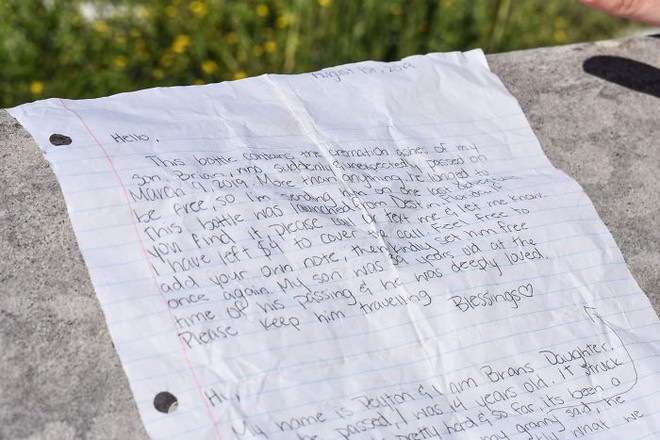 August 2019
Hello,
This bottle contains the cremation ashes of my
son Brian, who, suddenly & unexpectedly passed on
March 9, 2019. More than anything, he longed to
be free, so I'm sending him on one last adventure.
This bottle was launched from Destin, Florida. If
you find it please call or text me & let me know.
I have left $4 to cover the call. Feel free to
add your own note, then kindly set him free
once again. My son was years old at the
time of his passing & he was deeply loved.
Please keep him travelling Blessings♡
Hi,
My name is Peyton & I am Brians Daughter.
he passed, I was 4 years old. It struck
pretty hard & so far, its been a
my granny said, he
what we